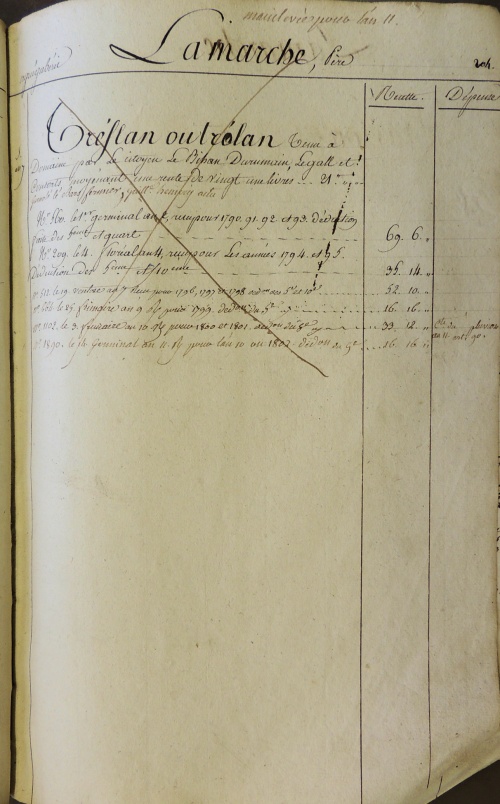 mainlevée pour l'an 11.
Lamarche, père
204.
Recette. Dépense
Tréflan ou trolan Tenu à
Domaine par Le citoyen Le Bihan Durumain, Legall et
Consorts, moyennant une rente de vingt une livres ... 21.
N.º 560. 1.er germinal an 4, reçu pour 1790, 91, 92 et 93. déduction
faite des 5eme et quart 69. 6.
N.º 209. le 4. floréal an 4, reçu pour Les années 1794 et 95.
Déduction des 5eme et 10eme 35. 14.
n.º 512. le 19 ventose an 7 reçu pour 1796, 1797 et 1798 52. 10
le 25 frimaire an 9 pour 1799. 16. 16.
le 3. frimaire an 10 pour 1800 et 1801. 33. 12.
n.º 1890. le 14 Germinal an 11. pour l'an 10 ou 1802. 16 16